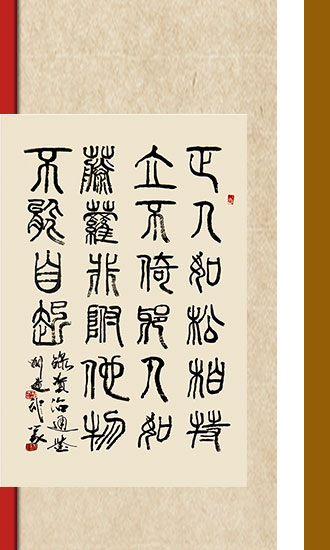 正人如松柏特
立不倚邪人如
藤蘿非附他物
不能自起
錄資治通鑑